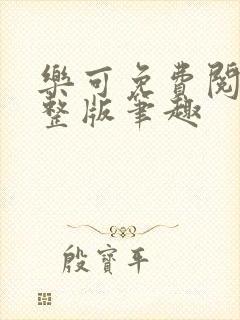 樂可免費閱
整版筆趣
殷寶平